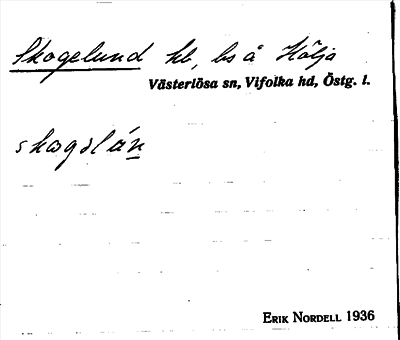 Skogelund hb, bs å Hölja
Västerlösa sn, Vifolka hd, Östg. l.
skogslán
ERIK NORDELL 1936